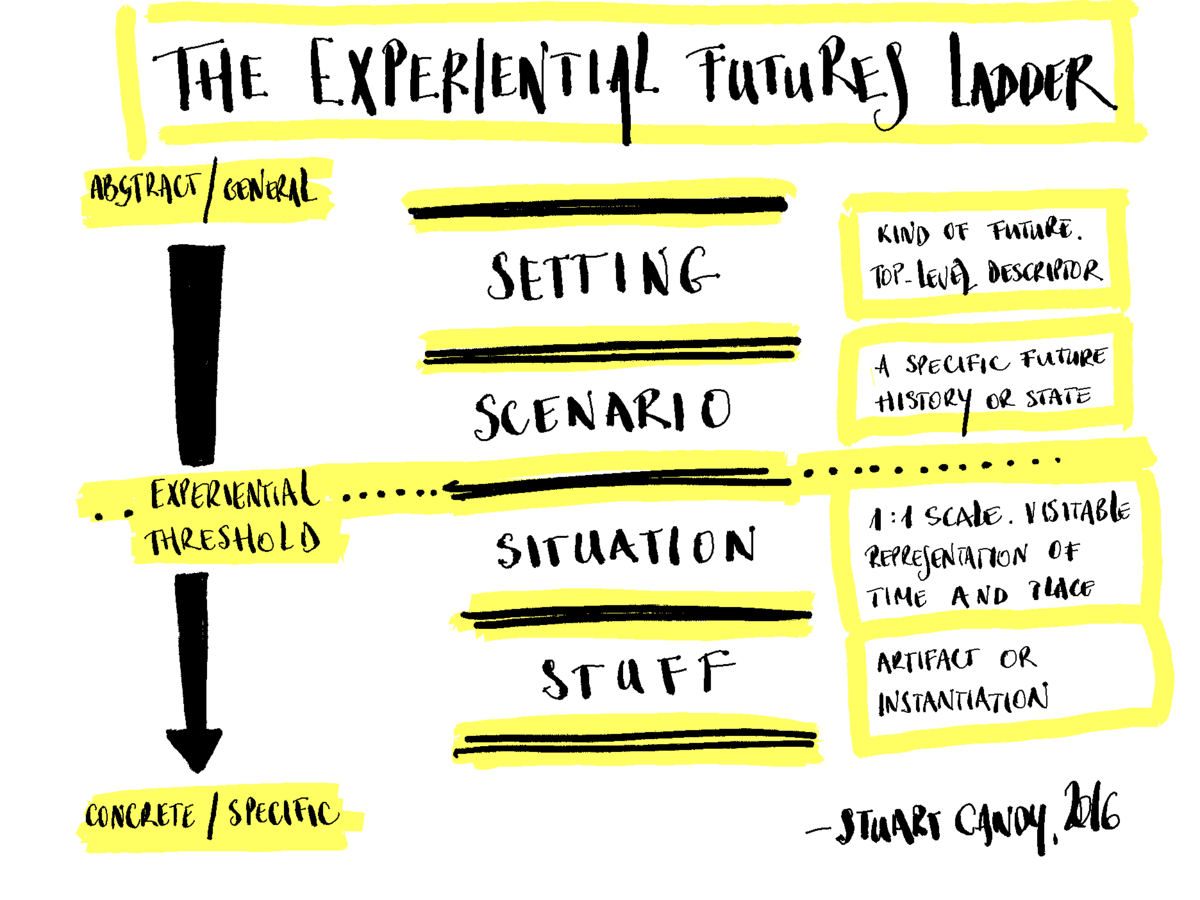 THE EXPERIENTIAL FUTURES LADDER
ABSTRACT / GENERAL
SETTING
KIND OF FUTURE.
TOP-LEVEL DESCRIPTOR
SCENARIO
A SPECIFIC FUTURE
HISTORY OR STATE
EXPERIENTIAL
THRESHOLD
SITUATION
1:1 SCALE. VISITABLE
REPRESENTATION OF
TIME AND PLACE
STUFF
ARTIFACT OR
INSTANTIATION
CONCRETE / SPECIFIC
— STUART CANDY, 2016